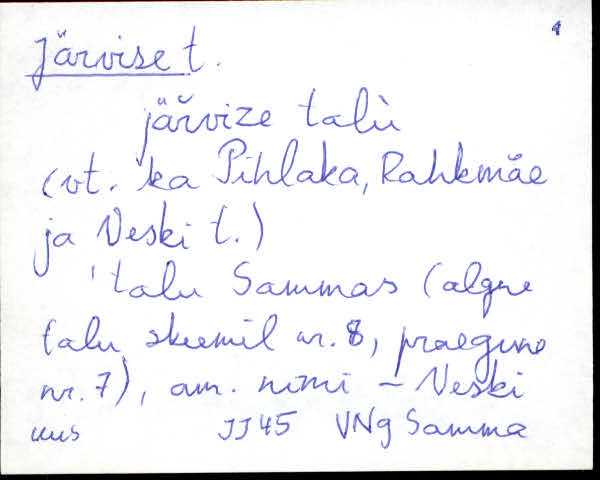 Järvise t.
järvize talù
(vt. ka Pihlaka, Rahkmäe
ja Veski t.)
'talu Sammas (algne
talu skeemil nr. 8, praegune
nr. 7), am. nimi – Veski
uus JJ45 VNg Samma